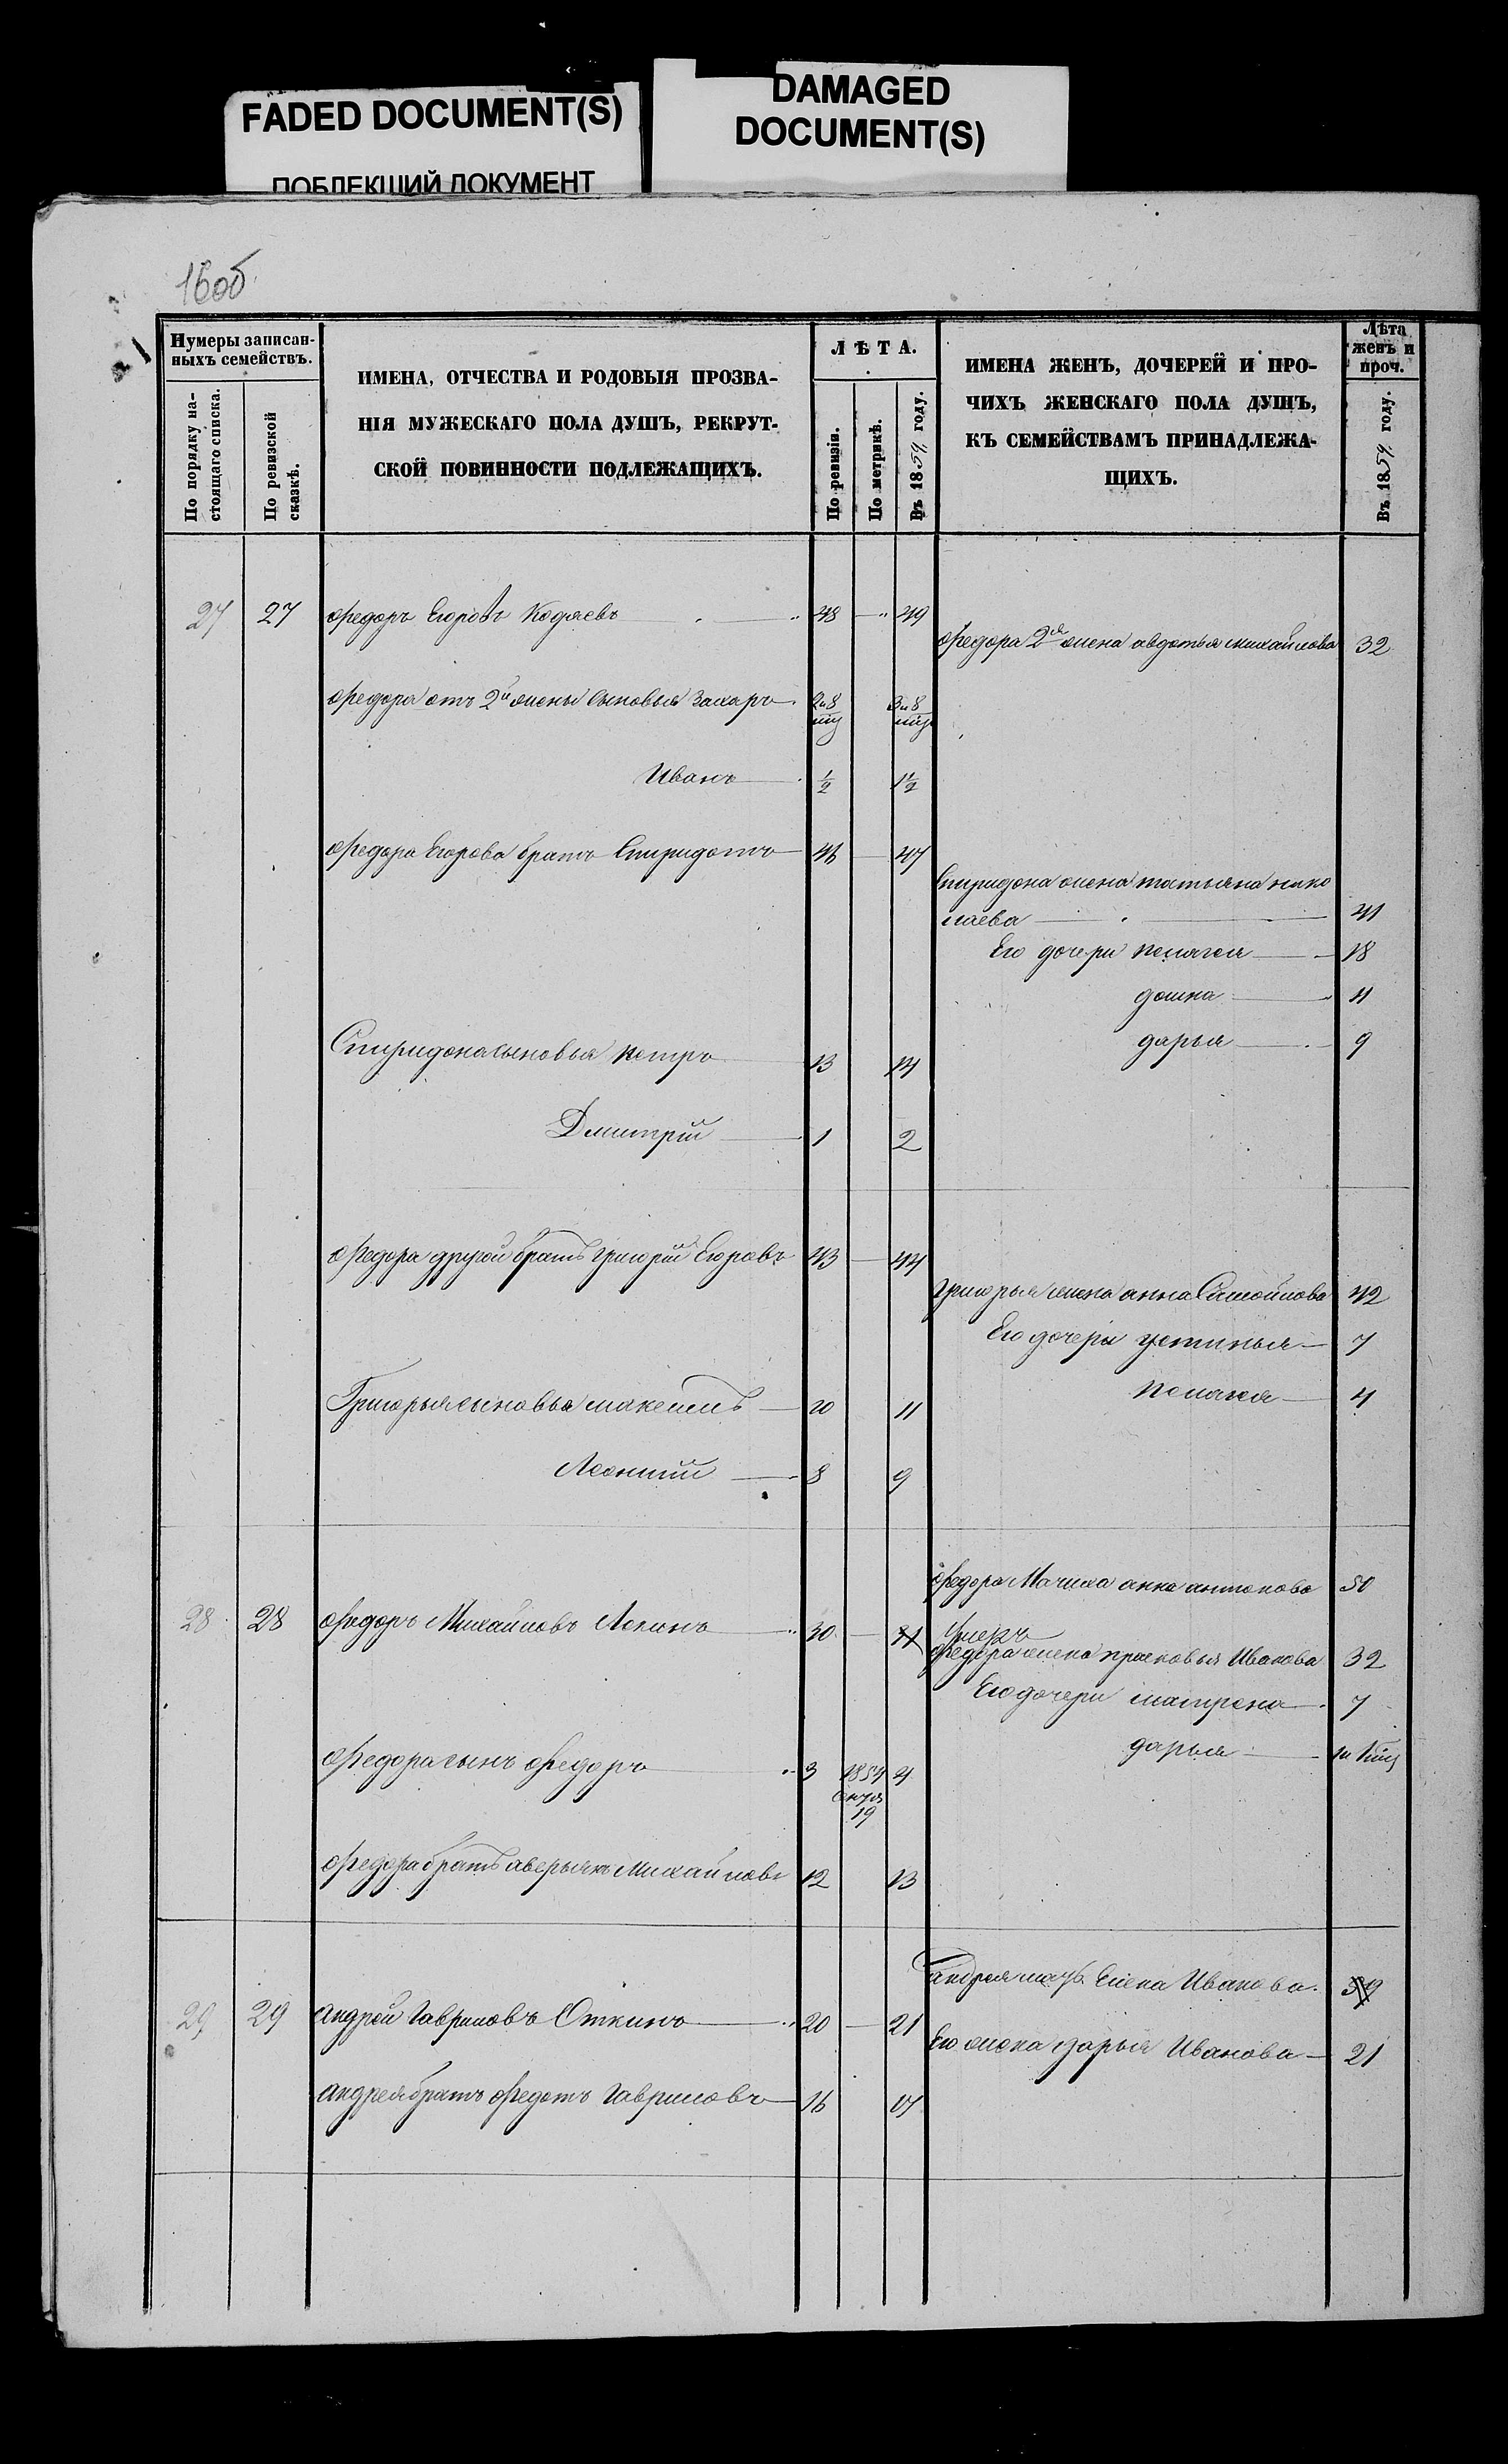 FADED DOCUMENT(S)
ПОБЛЕКШИЙ ДОКУМЕНТ
DAMAGED
DOCUMENT(S)
16об
Нумеры записан-
ныхъ семействъ.
По порядку на-
стоящаго списка.
По ревизской
сказкѣ.
ИМЕНА, ОТЧЕСТВА И РОДОВЫЯ ПРОЗВА-
НІЯ МУЖЕСКАГО ПОЛА ДУШЪ, РЕКРУТ-
СКОЙ ПОВИННОСТИ ПОДЛЕЖАЩИХЪ.
ЛѢТА.
По ревизіи.
По метрикѣ.
Въ 1859 году.
ИМЕНА ЖЕНЪ, ДОЧЕРЕЙ И ПРО-
ЧИХЪ ЖЕНСКАГО ПОЛА ДУШЪ,
КЪ СЕМЕЙСТВАМЪ ПРИНАДЛЕЖА-
ЩИХЪ.
Лѣта
женъ и
проч.
Въ 1859 году.
27 27 Федоръ Егоровъ Кодяевъ 48 49
Федора 2я жена авдотья михайлова 32
Федора отъ 2й жены сыновья Захаръ 2 и 8 3 и 8
Иванъ ½ 1½
Федора Егорова братъ Спиридонъ 46 47
Спиридона жена татьяна нико
лаева 41
Его дочери пелагея 18
домна 11
дарья 9
Спиридона сыновья петръ 13 14
Дмитрій 1 2
Федора другой братъ григорій Егоровъ 43 44
григорья жена анна Самойлова 42
Его дочери устинья 7
пелагея 4
Григорья сыновья максимъ 10 11
Леонтій 8 9
Федора Мачиха анна антонова 50
28 28 Федоръ Михайловъ Лопинъ 30 31 умеръ
Федора жена прасковья Иванова 32
Его дочери матрена 7
дарья
Федора сынъ Федоръ 3 1854 4
19
Федора братъ аверьянъ Михайловъ 12 13
андрея мать Елена Иванова 59
29 29 андрей гавриловъ Откинъ 20 21
Его жена дарья Иванова 21
андрея братъ Федотъ гавриловъ 16 17